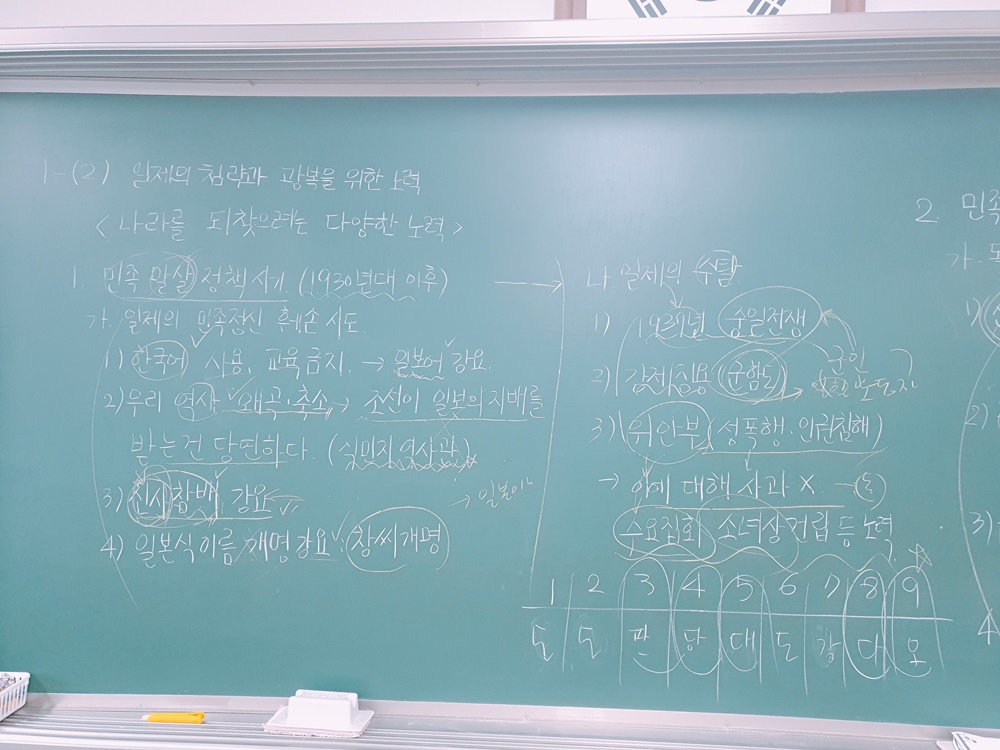 1-(2) 일제의 침략과 광복을 위한 노력
<나라를 되찾으려는 다양한 노력>
1. 민족 말살 정책 시기 (1930년대 이후)
가. 일제의 민족정신 훼손 시도.
1) 한국어 사용, 교육 금지. → 일본어 강요.
2) 우리 역사 왜곡·축소 → 조선이 일본의 지배를
받는 건 당연하다. (식민지 역사관)
3) 신사참배 강요
→ 일본이
4) 일본식 이름 개명 강요 : 창씨개명
나. 일제의 수탈
1) 1937년 중일전쟁
2) 강제징용 (군함도)
군인
3) 위안부 (성폭행. 인권침해)
→ 이에 대해 사과 X. →
수요집회, 소녀상 건립 등 노력
1 2 3 4 5 6 7 8 9
도 도 판 당 대 도 강 다 모
2. 민족
가.
1)
2)
3)
4